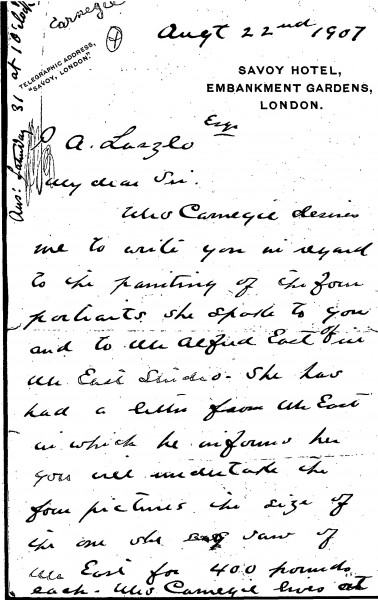 Carnegie
Augt 22nd 1907
TELEGRAPHIC ADDRESS,
"SAVOY, LONDON."
SAVOY HOTEL,
EMBANKMENT GARDENS,
LONDON.
Ans: Saturday 31 at 10
P A. Laszlo Esqr
My dear Sir.
Mrs Carnegie desires
me to write you in regard
to the painting of the four
portraits she spoke to you
and to Mr Alfred East of in
Mr East Studio. She has
had a letter from Mr East
in which he informs her
you will undertake the
four pictures the size of
the one she saw of
Mr East for 400 pounds
each. Mrs Carnegie lives at